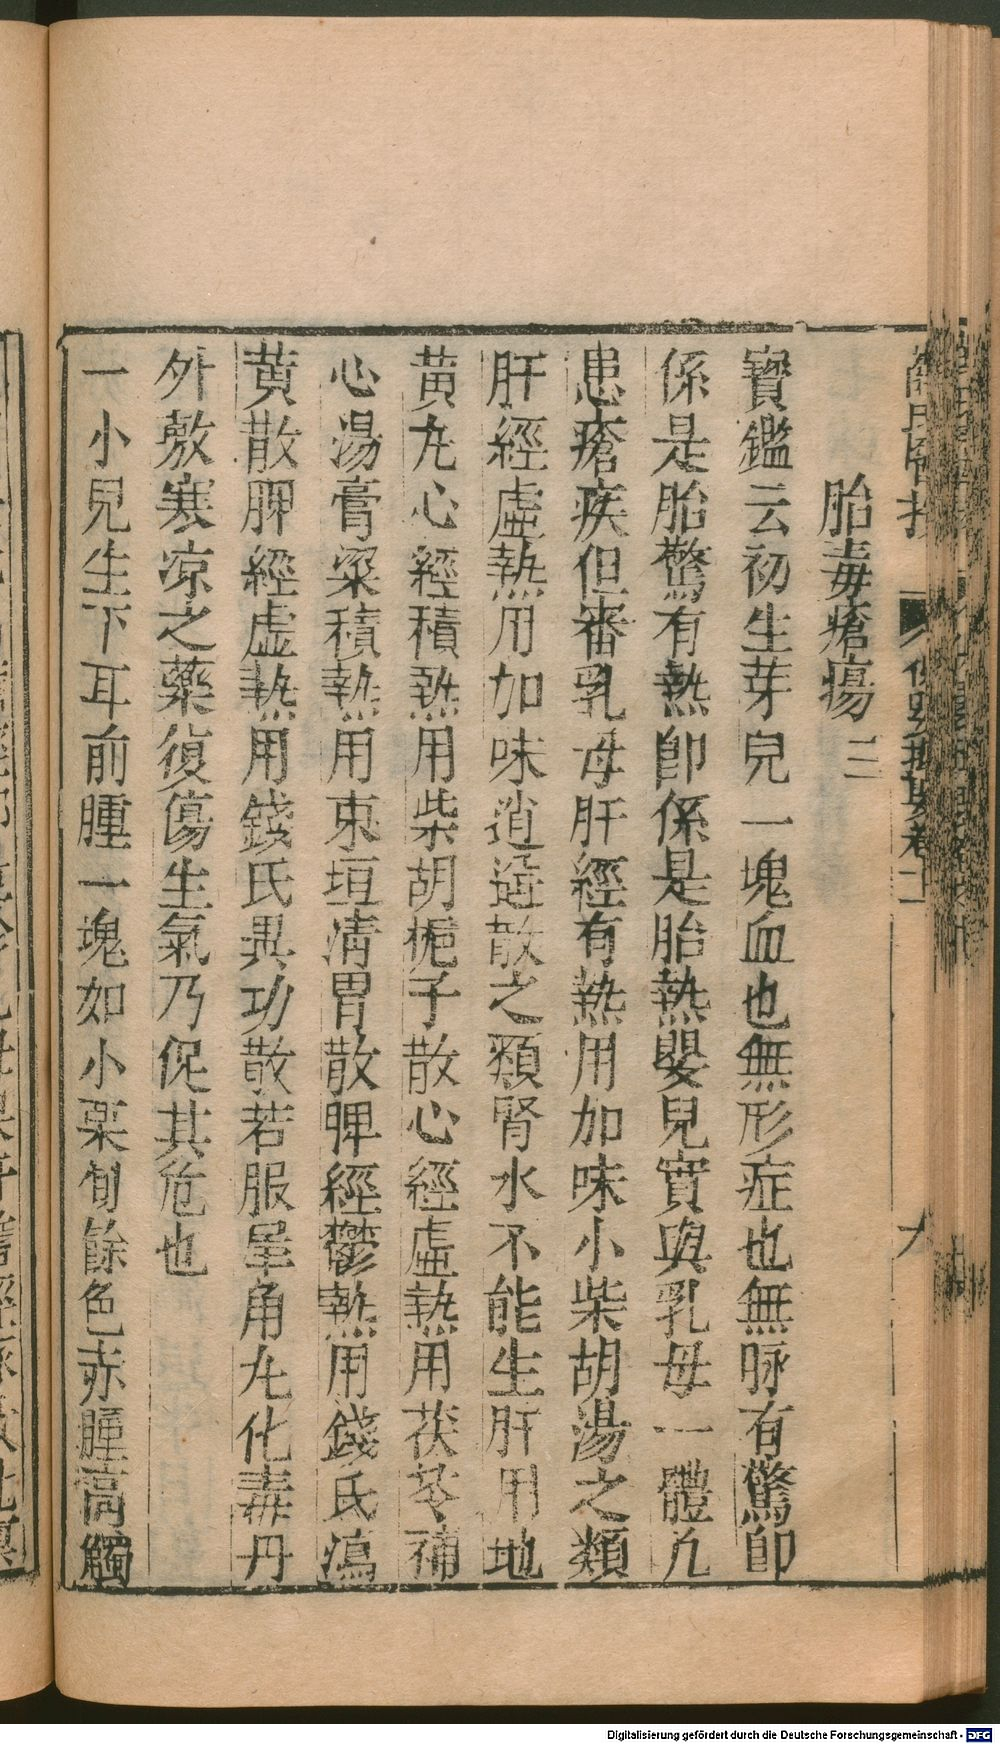 胎毒瘡瘍三
寳鑑云初生芽兒一塊血也無形症也無脉有驚卽
係是胎驚有熱卽係是胎熱嬰兒實與乳母一體凢
患瘡疾但審乳母肝經有熱用加味小柴胡湯之類
肝經虛熱用加味逍遥散之類腎水不能生肝用地
黄九心經積熱用柴胡梔子散心經虛熱用茯苓補
心湯膏粱積熱用東垣凊胃散脾經鬱熱用錢氏瀉
黄散脾經虛熱用錢氏異功散若服犀角九化毒丹
外敷寒凉之藥復傷生氣乃促其危也
一小兒生下耳前腫一塊如小栗旬餘色赤腫高觸
Digitalisierung gefördert durch die Deutsche Forschungsgemeinschaft - DFG